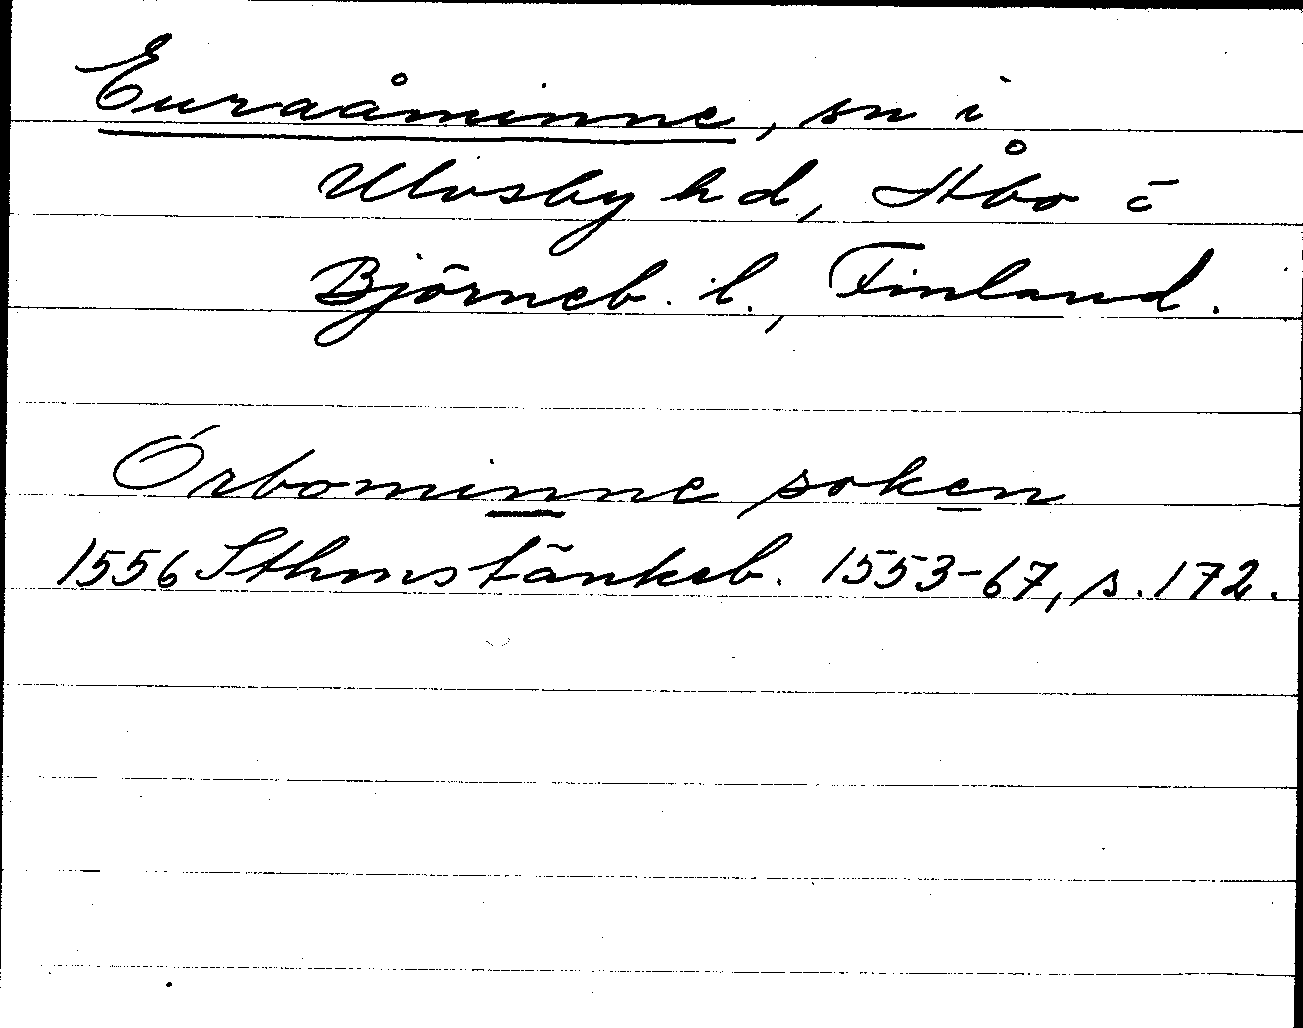 Euraåminne, sn i
Ulvsby hd, Åbo o
Björneb. l., Finland.
Örbominne soken
1556 Sthms tänkeb. 1553-67, s. 172.